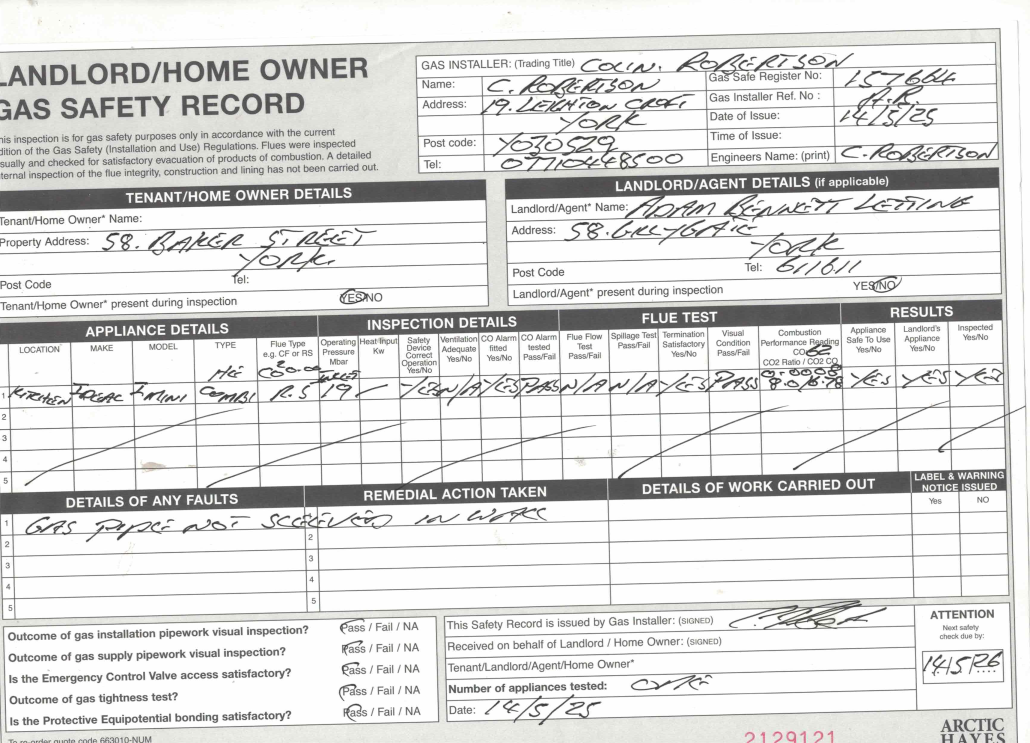 LANDLORD/HOME OWNER
GAS SAFETY RECORD
This inspection is for gas safety purposes only in accordance with the current
dition of the Gas Safety (Installation and Use) Regulations. Flues were inspected
sually and checked for satisfactory evacuation of products of combustion. A detailed
ternal inspection of the flue integrity, construction and lining has not been carried out.
GAS INSTALLER: (Trading Title) COLIN. ROBERTSON
Name: C. ROBERTSON
Gas Safe Register No: 157664
Address: 19. LEIGHTON CROFT
Gas Installer Ref. No :
YORK
Date of Issue: 14/5/25
Post code:
Time of Issue:
Tel: 07710448500
Engineers Name: (print) C. ROBERTSON
TENANT/HOME OWNER DETAILS
Tenant/Home Owner* Name:
Property Address: 58. BAKER STREET
YORK.
Post Code Tel:
Tenant/Home Owner* present during inspection YES/NO
LANDLORD/AGENT DETAILS (if applicable)
Landlord/Agent* Name: ADAM BENNETT LETTING
Address: 58. GILLYGATE
YORK
Post Code Tel: 611611
Landlord/Agent* present during inspection YES/NO
APPLIANCE DETAILS INSPECTION DETAILS FLUE TEST RESULTS
LOCATION MAKE MODEL TYPE Flue Type e.g. CF or RS Operating Pressure Mbar Heat/Input Kw Safety Device Correct Operation Yes/No Ventilation Adequate Yes/No CO Alarm fitted Yes/No CO Alarm tested Pass/Fail Flue Flow Test Pass/Fail Spillage Test Pass/Fail Termination Satisfactory Yes/No Visual Condition Pass/Fail Combustion Performance Reading CO 62 CO2 Ratio / CO2 CO Appliance Safe To Use Yes/No Landlord's Appliance Yes/No Inspected Yes/No
HE INLET
1 KITCHEN IDEAL I MINI COMBI R.S 19 / YES N/A YES PASS N/A N/A YES PASS YES YES YES
2
3
4
5
DETAILS OF ANY FAULTS REMEDIAL ACTION TAKEN DETAILS OF WORK CARRIED OUT LABEL & WARNING NOTICE ISSUED
Yes NO
1 GAS PIPE NOT SLEEVED IN WALL
2 2
3 3
4 4
5 5
Outcome of gas installation pipework visual inspection? Pass / Fail / NA
Outcome of gas supply pipework visual inspection? Pass / Fail / NA
Is the Emergency Control Valve access satisfactory? Pass / Fail / NA
Outcome of gas tightness test? Pass / Fail / NA
Is the Protective Equipotential bonding satisfactory? Pass / Fail / NA
This Safety Record is issued by Gas Installer: (SIGNED)
Received on behalf of Landlord / Home Owner: (SIGNED)
Tenant/Landlord/Agent/Home Owner*
Number of appliances tested: ONE
Date: 14/5/25
ATTENTION
Next safety
check due by:
14/5/26
To re-order quote code 663010-NUM
2129121
ARCTIC
HAYES